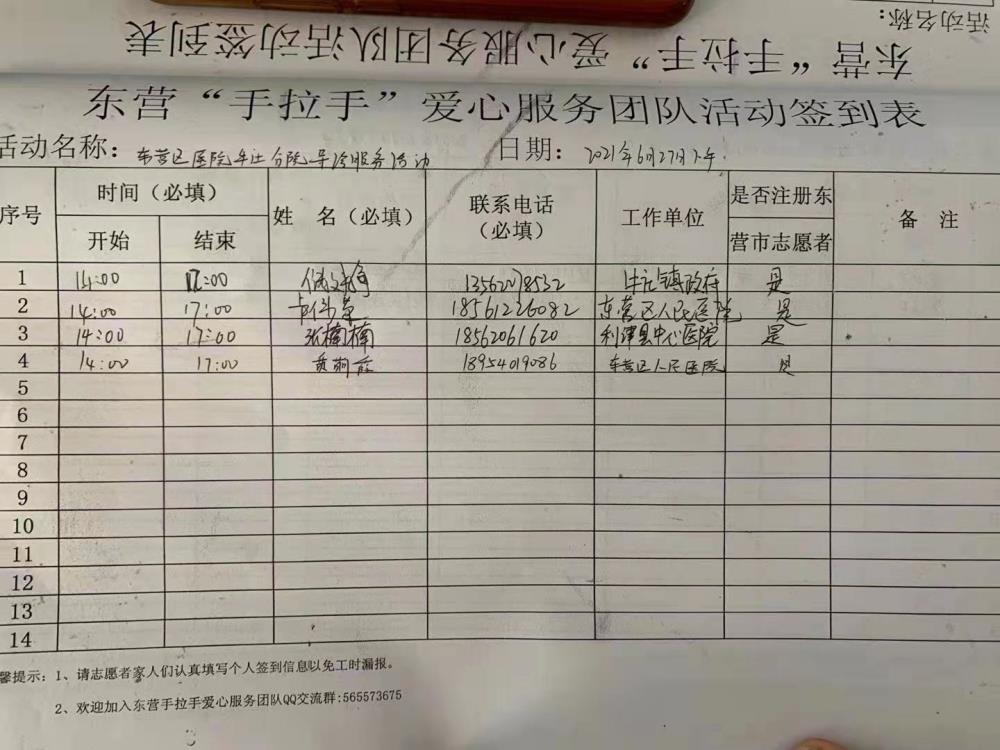 活动名称：
东营“手拉手”爱心服务团队活动签到表
东营“手拉手”爱心服务团队活动签到表
活动名称： 东营区医院牛庄分院导诊服务活动 日期： 2021年6月27日下午
序号 时间（必填） 姓 名（必填） 联系电话（必填） 工作单位 是否注册东营市志愿者 备 注
开始 结束
1 14:00 17:00 13562078532 牛庄镇政府 是
2 14:00 17:00 18561226082 东营区人民医院 是
3 14:00 17:00 张楠楠 18562061620 利津县中心医院 是
4 14:00 17:00 18954019086 东营区人民医院 是
5
6
7
8
9
10
11
12
13
14
馨提示：1、请志愿者家人们认真填写个人签到信息以免工时漏报。
2、欢迎加入东营手拉手爱心服务团队QQ交流群:565573675